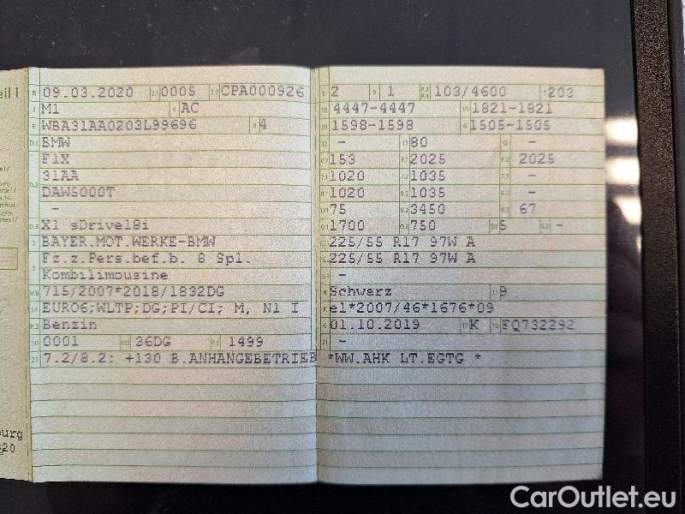 eil I
09.03.2020 0005 CPA000926
M1 AC
WBA31AA0203L99696 4
BMW
F1X
31AA
DAW5000T
-
X1 sDrive18i
BAYER.MOT.WERKE-BMW
Fz.z.Pers.bef.b. 8 Spl.
Kombilimousine
715/2007*2018/1832DG
EURO6;WLTP;DG;PI/CI; M, N1 I
Benzin
0001 36DG 1499
7.2/8.2: +130 B.ANHANGEBETRIEB *WW.AHK LT.EGTG *
2 1 103/4600 203
4447-4447 1821-1821
1598-1598 1505-1505
- 80 -
153 2025 2025
1020 1035 -
1020 1035 -
75 3450 67
1700 750 5 -
225/55 R17 97W A
225/55 R17 97W A
-
Schwarz 9
e1*2007/46*1676*09
01.10.2019 K FQ732292
-
CarOutlet.eu